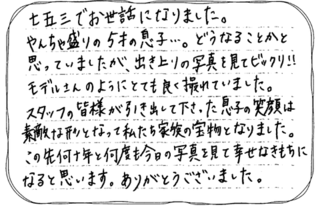 七五三でお世話になりました。
やんちゃ盛りの5才の息子…。どうなることかと
思っていましたが、出き上りの写真を見てビックリ!!
モデルさんのようにとても良く撮れていました。
スタッフの皆様が引き出して下さった息子の笑顔は
素敵な形となって私たち家族の宝物となりました。
この先何十年と何度も今日の写真を見て幸せなきもちに
なると思います。ありがとうございました。